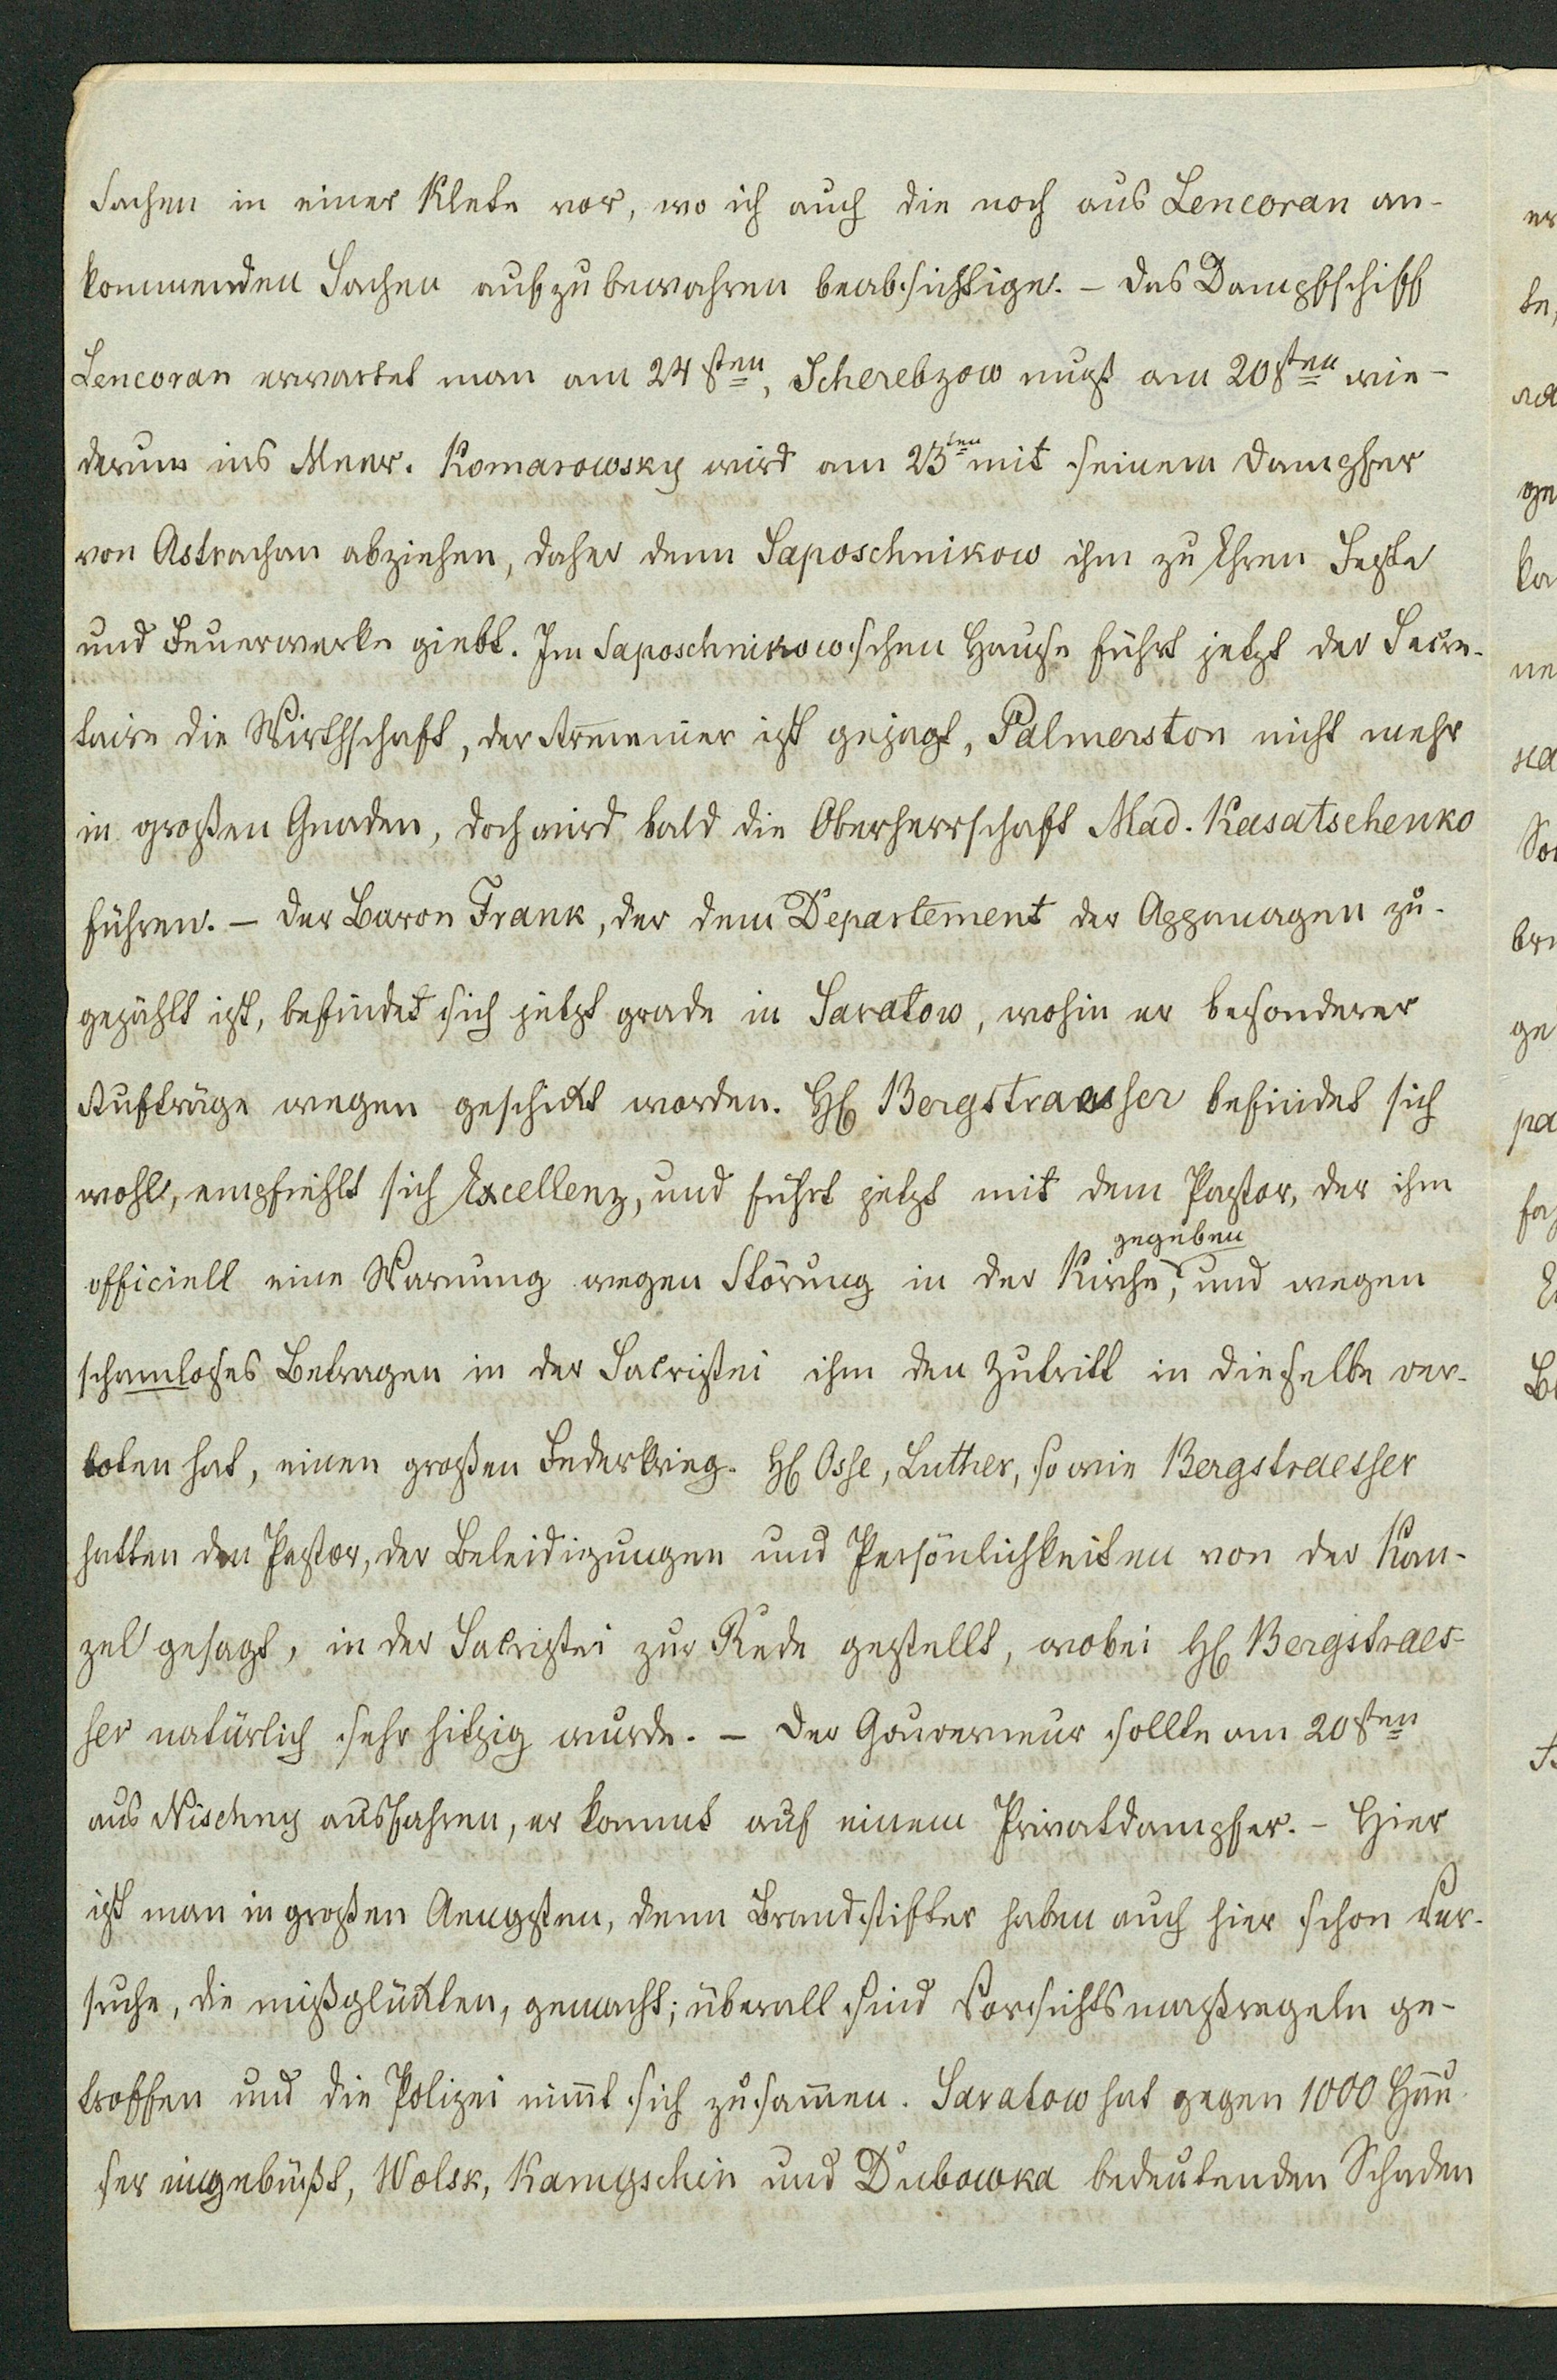 Sachen in einer Klete vor, wo ich auch die noch aus Lencoran an-
kommenden Sachen aufzubewahren beabsichtige. – Das Dampfschiff
Lencoran erwartet man am 24sten, Scherebzow muß am 20sten wie-
derum ins Meer. Komarowsky wird am 23ten mit seinem Dampfer
von Astrachan abziehen, daher denn Saposchnikow ihm zu Ehren Feste
und Feuerwerke giebt. Im Saposchnikowschen Hause führt jetzt der Secre-
taire die Wirthschaft, der Armenier ist gejagt, Palmerston nicht mehr
in großen Gnaden, doch wird bald die Oberherrschaft Mad. Kasatschenko
führen. – Der Baron Frank, der dem Departement der Appanagen zu-
gezählt ist, befindet sich jetzt grade in Saratow, wohin er besonderer
Aufträge wegen geschickt worden. H Bergstraesser befindet sich
wohl, empfiehlt sich Excellenz, und führt jetzt mit dem Pastor, der ihm
gegeben
officiell eine Warnung wegen Störung in der Kirche, und wegen
schamloses Betragen in der Sacristei ihm den Zutritt in dieselbe ver-
boten hat, einen großen Federkrieg. H Osse, Luther, so wie Bergstraesser
hatten den Pastor, der Beleidigungen und Persönlichkeiten von der Kan-
zel gesagt, in der Sacristei zur Rede gestellt, wobei H Bergstraes-
ser natürlich sehr hitzig wurde. – Der Gouverneur sollte am 20sten
aus Nischny ausfahren, er kommt auf einem Privatdampfer. – Hier
ist man in großen Aengsten, denn Brandstifter haben auch hier schon Ver-
suche, die mißglückten, gemacht; überall sind Vorsichtsmaßregeln ge-
troffen und die Polizei nimmt sich zusammen. Saratow hat gegen 1000 Häu-
ser eingebüßt, Wolsk, Kamyschin und Dubowka bedeutenden Schaden